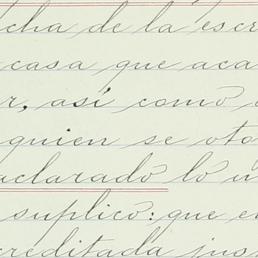 cha de la escr
casa que aca
r, así como
quien se oto
aclarado lo u
suplico: que e
creditada jus